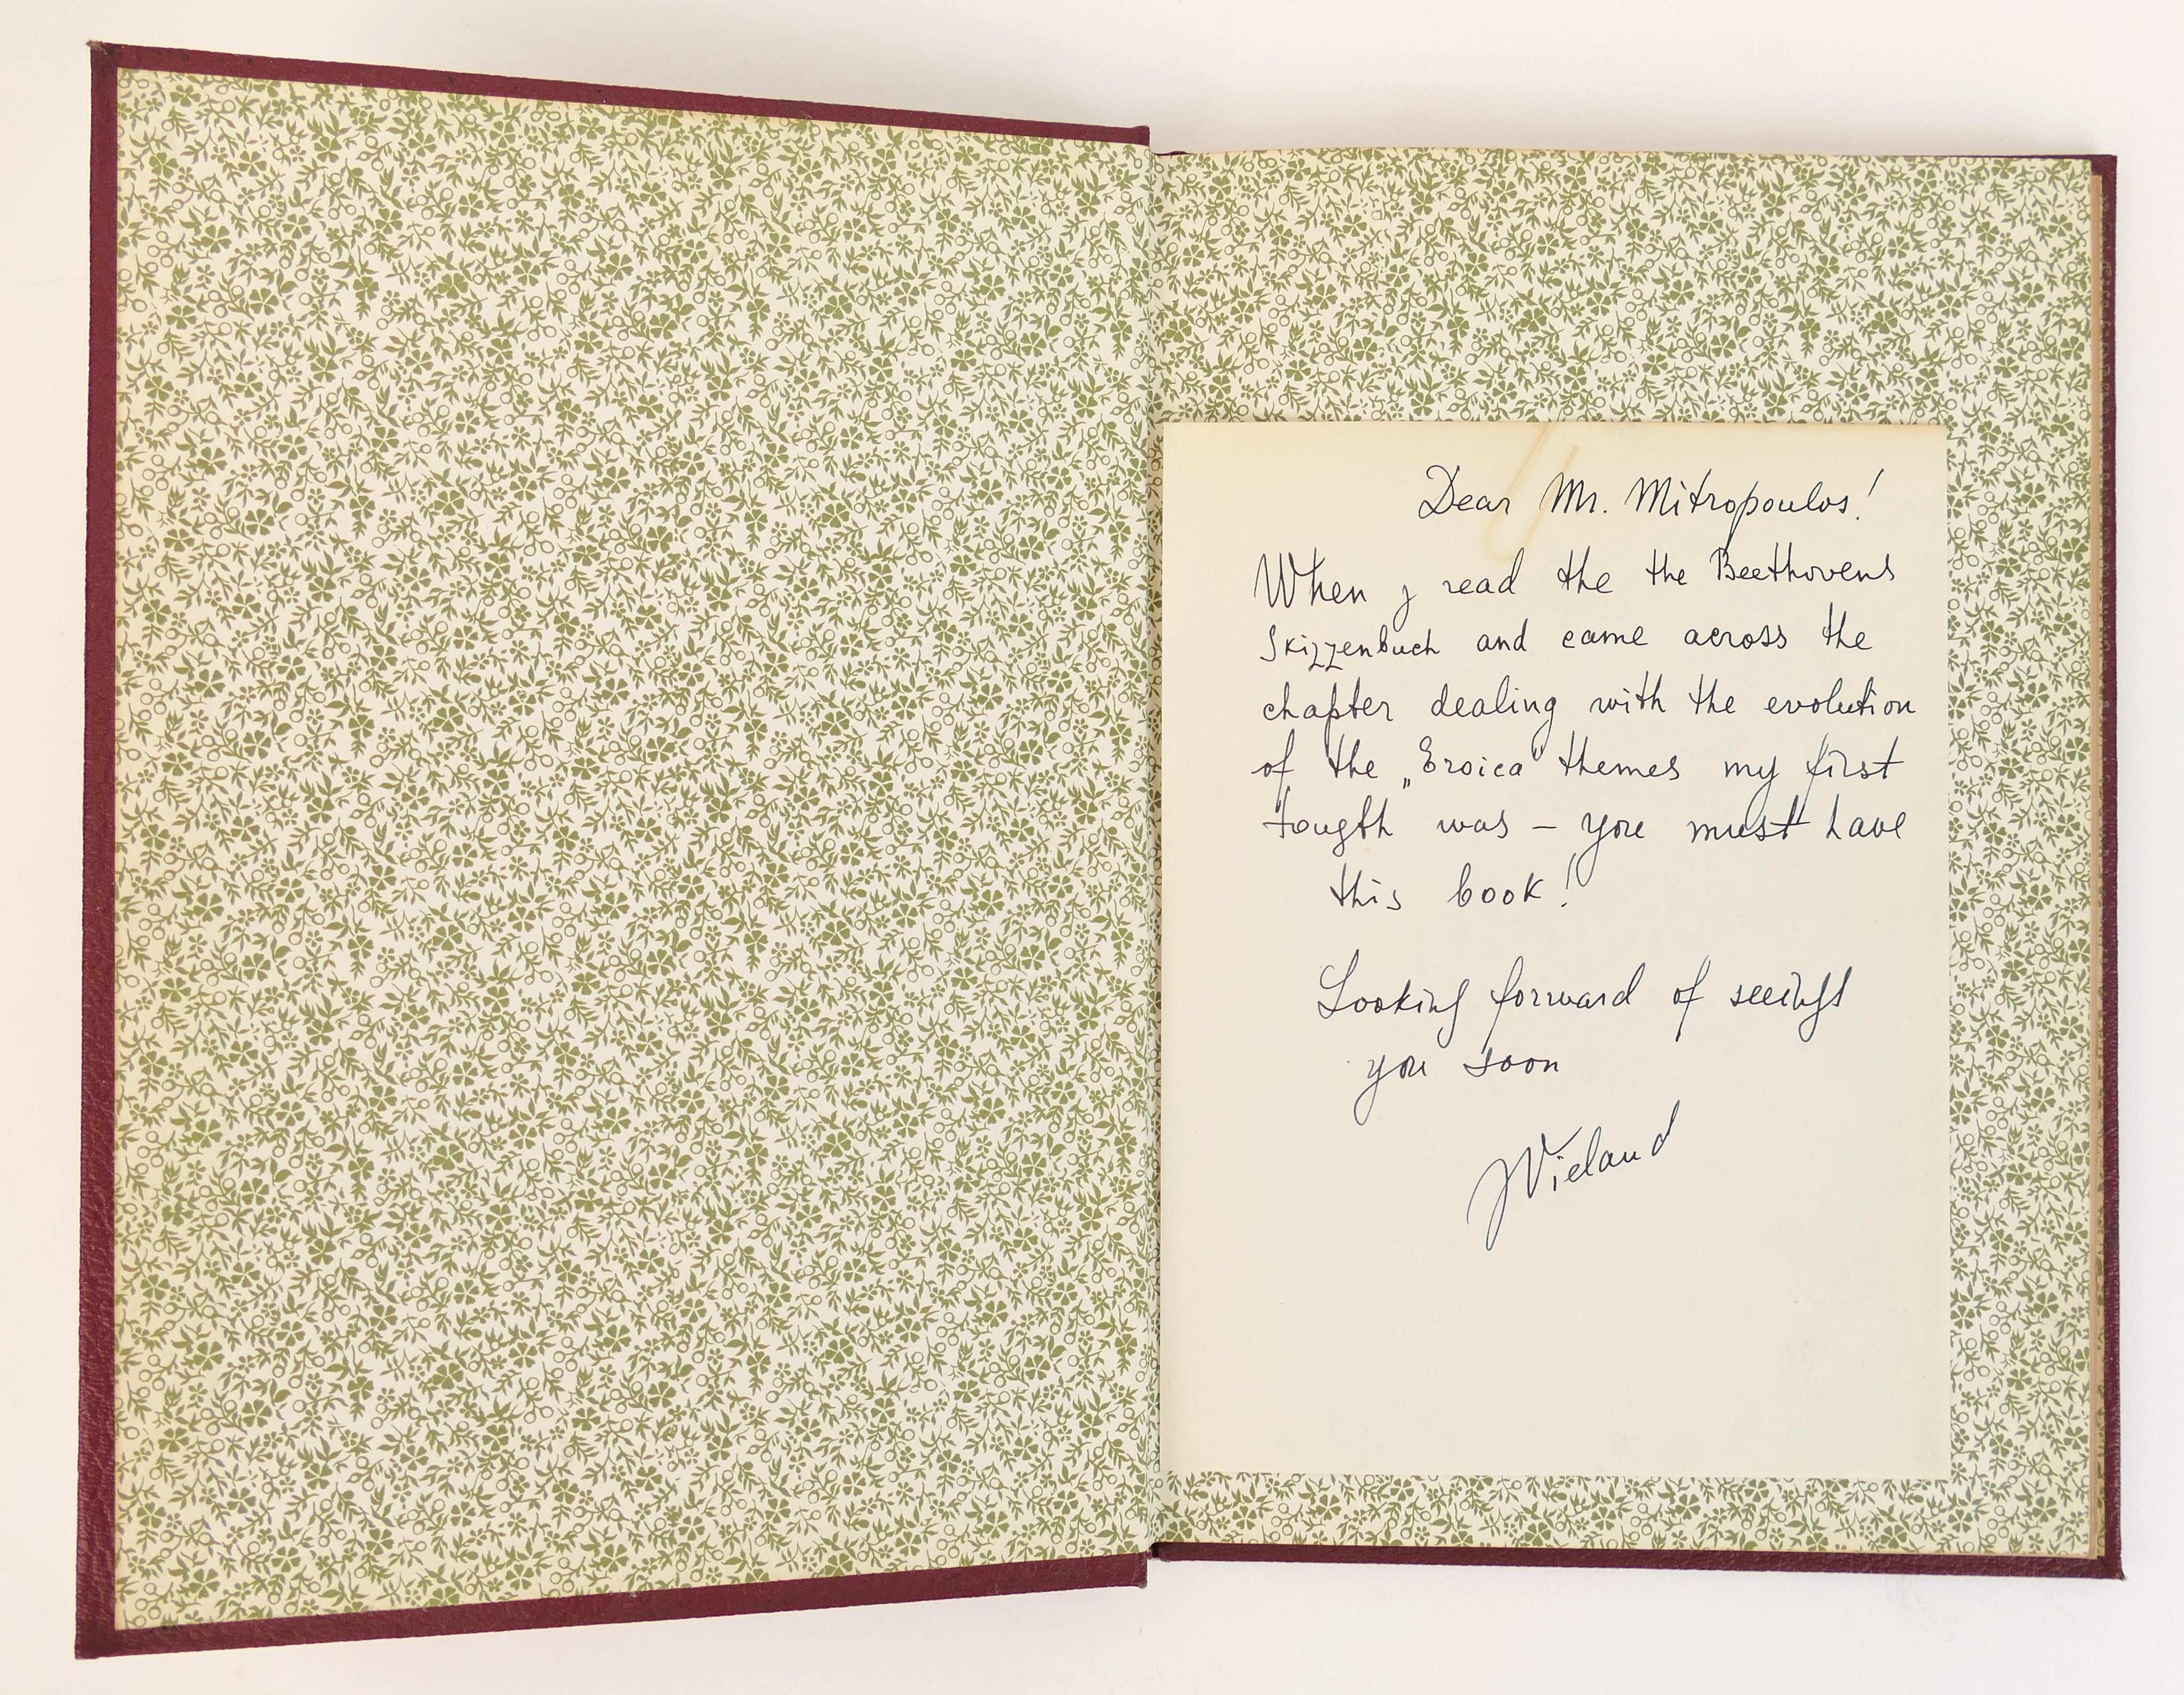 Dear Mr. Mitropoulos!
When J read the the Beethovens
Skizzenbuch and came across the
chapter dealing with the evolution
of the „Eroica" themes my first
tougth was – you must have
this book!
Looking forward of seeings
you soon
Wieland